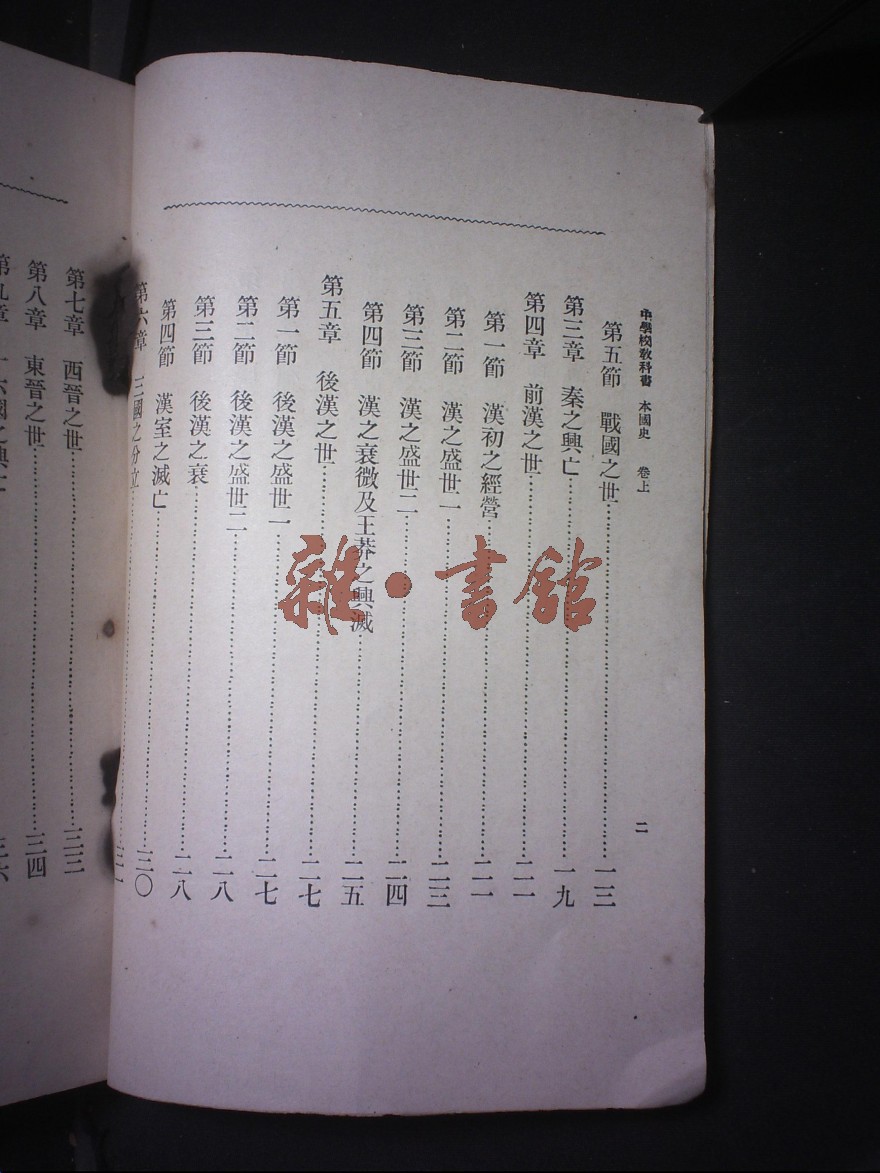 中學校教科書 本國史 卷上 二
第五節 戰國之世 一三
第三章 秦之興亡 一九
第四章 前漢之世 二一
第一節 漢初之經營 二一
第二節 漢之盛世一 二三
第三節 漢之盛世二 二四
第四節 漢之衰微及王莽之興滅 二五
第五章 後漢之世 二七
第一節 後漢之盛世一 二七
第二節 後漢之盛世二 二八
第三節 後漢之衰 二八
第四節 漢室之滅亡 三〇
第六章 三國之分立
第七章 西晉之世 三三
第八章 東晉之世 三四
第九章 十六國之興亡 三六
雜·書館